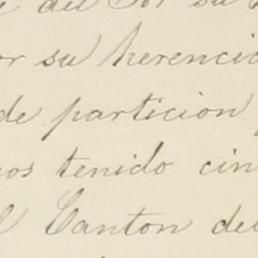 del Sor su
or su herencia
de particion
os tenido cin
l Canton del